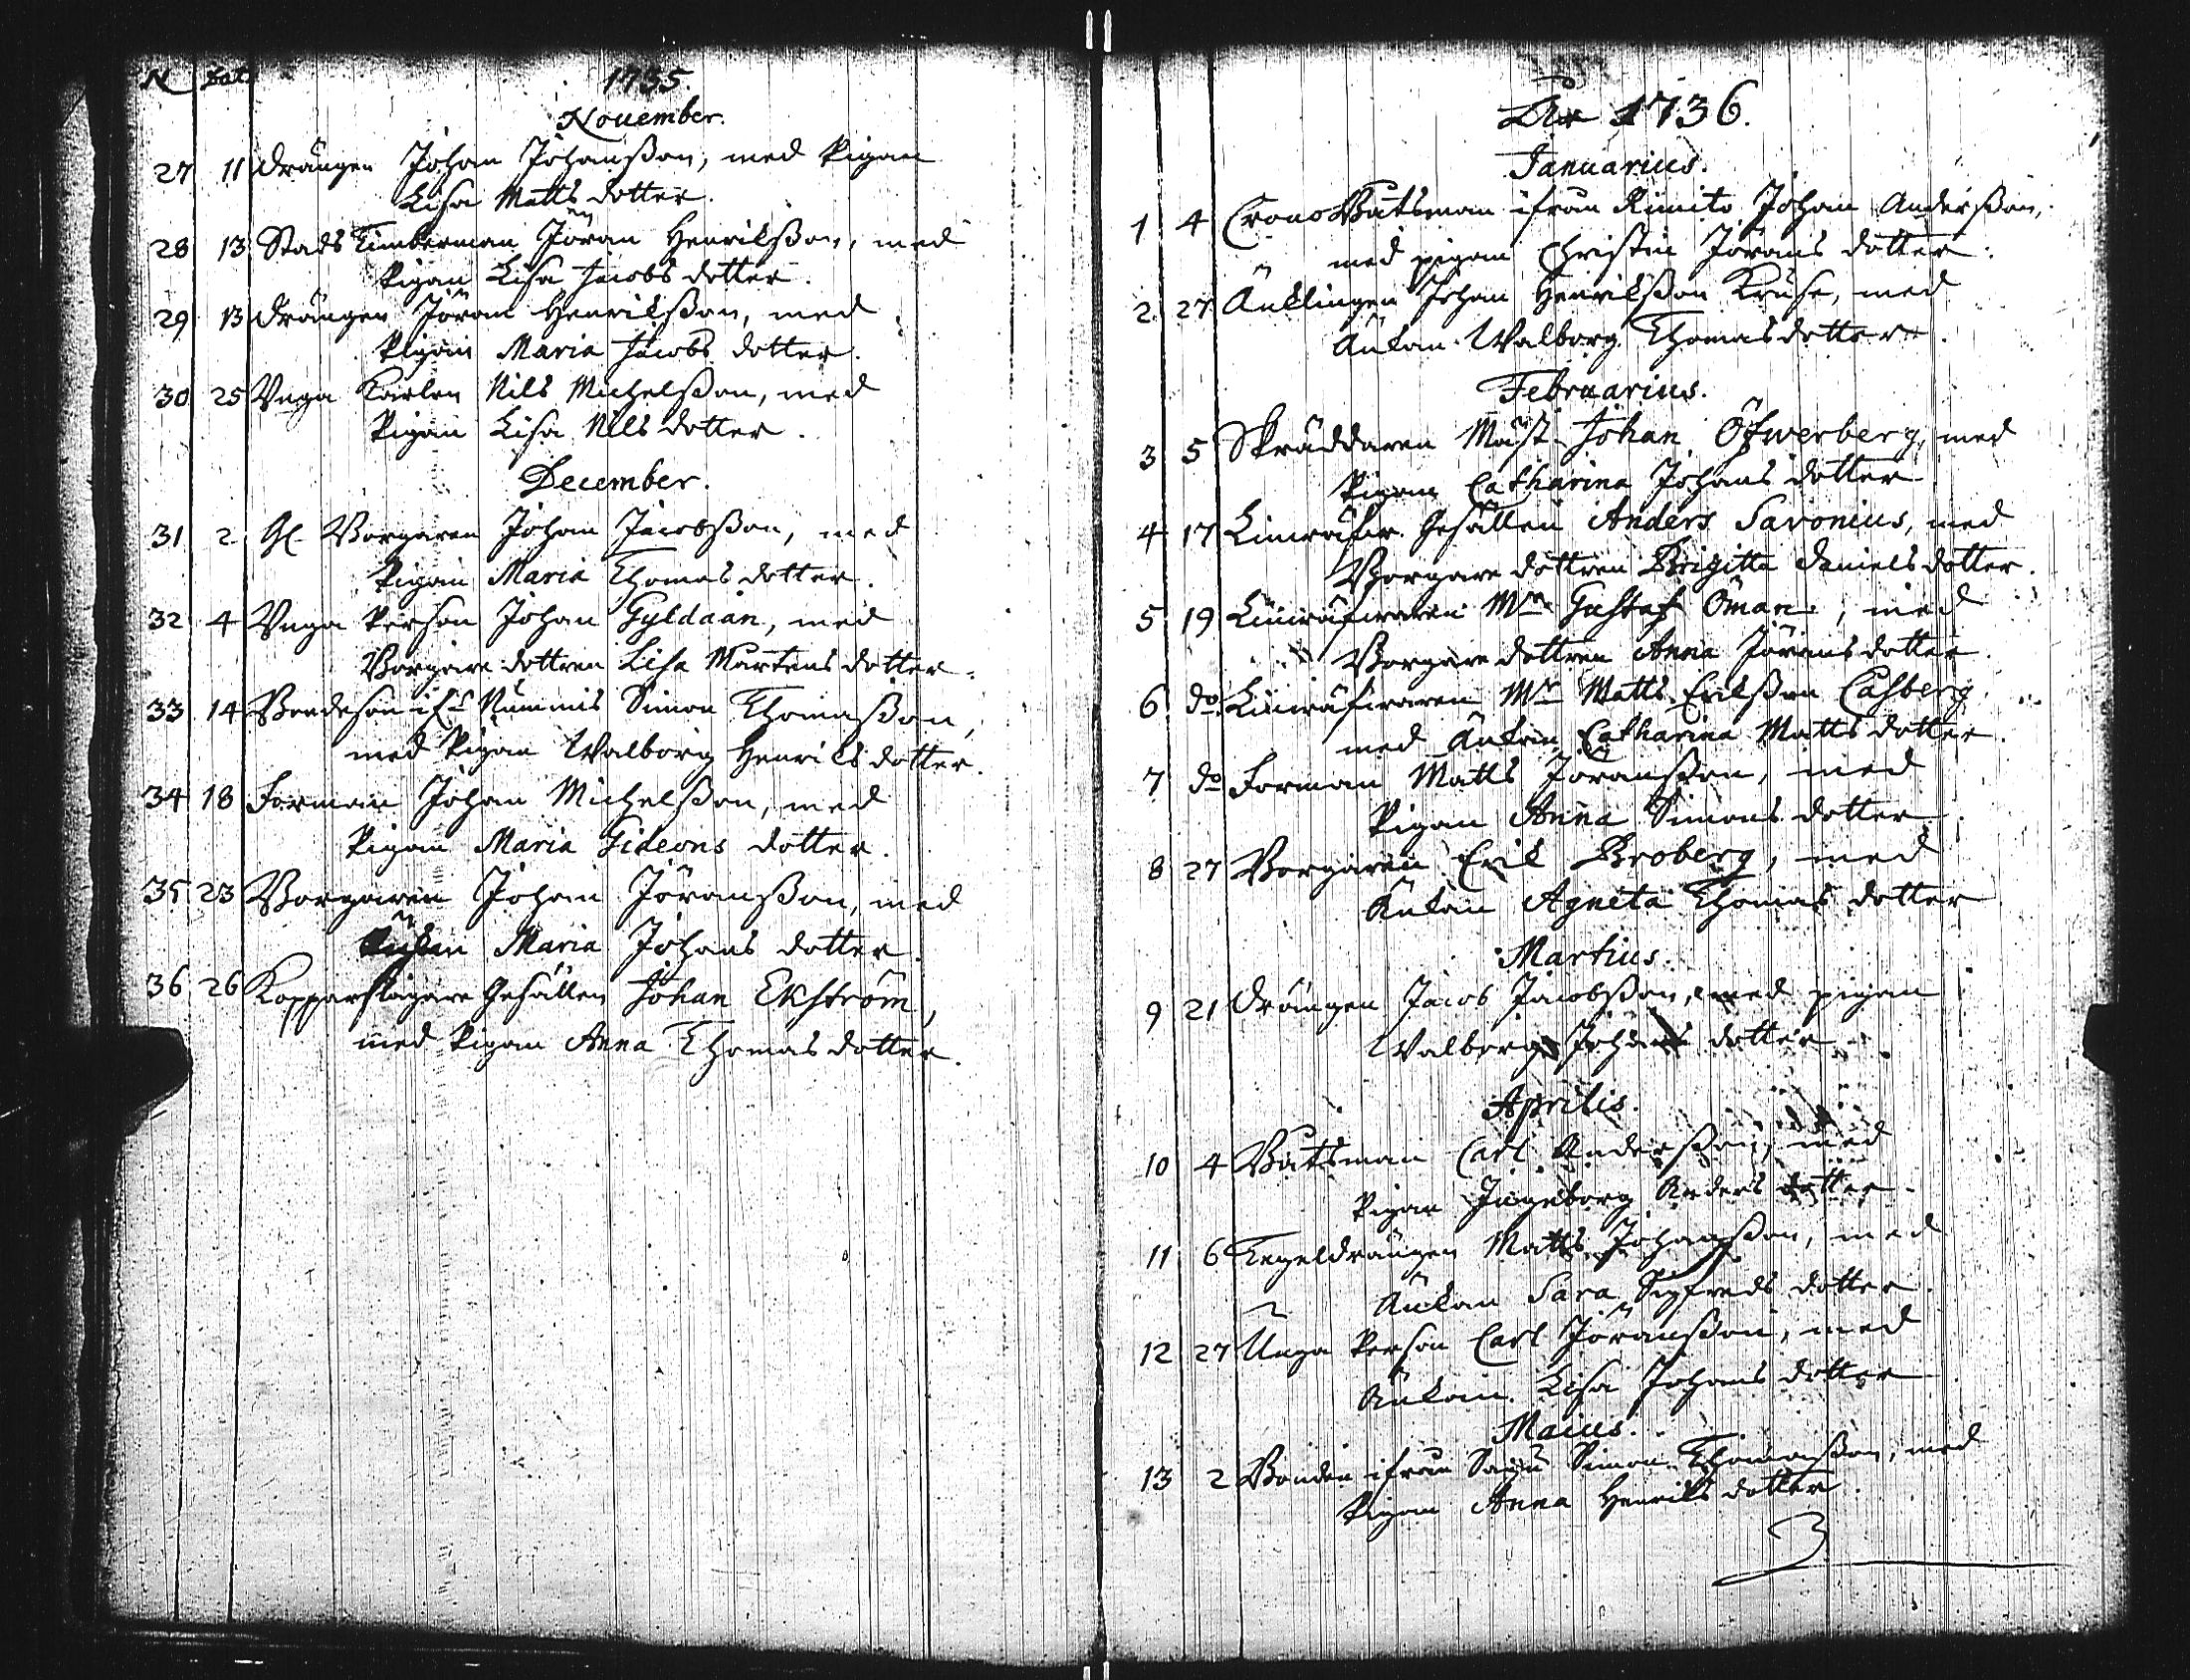 N Dat
1735.
November.
27 11 Drängen Johan Johansson, med Pigan
Lisa Matts dotter.
28 13 Stads Timberman Jöran Henriksson, med
Pigan Lisa Jacobs dotter.
29 13 Drängen Jöran Henriksson, med
Pigan Maria Jacobs dotter.
30 25 Unga Karlen Nils Michelsson, med
Pigan Lisa Nils dotter.
December.
31 2 Gl. Borgaren Johan Jacobsson, med
Pigan Maria Thomas dotter.
32 4 Unga Person Johan Gyldaän, med
Borgare dottren Lisa Martens dotter.
33 14 Bondeson ifr. Nummis Simon Thomasson,
med Pigan Walborg Henriks dotter.
34 18 Forman Johan Michelsson, med
Pigan Maria Gideons dotter.
35 23 Borgaren Johan Jöransson, med
Maria Johans dotter.
36 26 Kopparslagare Gesällen Johan Ekström,
med Pigan Anna Thomas dotter.
År 1736.
Januarius.
1 4 Crono Båtsman ifrån Rimito Johan Andersson,
med pigan Christin Jörans dotter.
2 27 Änklingen Johan Henriksson Kruse, med
Änkan Walborg Thomas dotter.
Februarius.
3 5 Skräddaren Mäst. Johan Öfwerberg, med
Pigan Catharina Johans dotter
4 17 Linwäfw. Gesällen Anders Savonius, med
Borgare dottren Brigitta Daniels dotter.
5 19 Linwäfwaren Mr. Gustaf Öman, med
Borgare dottren Anna Jörans dotter.
6 do Linwäfwaren Mr Matts Eriksson Casberg
med Änkan Catharina Matts dotter.
7 do Forman Matts Jöransson, med
Pigan Anna Simons dotter
8 27 Borgaren Erik Broberg, med
Änkan Agneta Thomas dotter
Martius.
9 21 Drängen Jacob Jacobsson, med pigan
Walborg Johans dotter.
Aprilis.
10 4 Båtsman Carl Andersson, med
Pigan Ingeborg Anders dotter.
11 6 Tegeldrängen Matts Johansson, med
Änkan Sara Sigfreds dotter.
12 27 Unga Person Carl Jöransson, med
Änkan Lisa Johans dotter
Maius.
13 2 Bonden ifrån Sagu Simon Thomasson, med
Pigan Anna Henriks dotter.